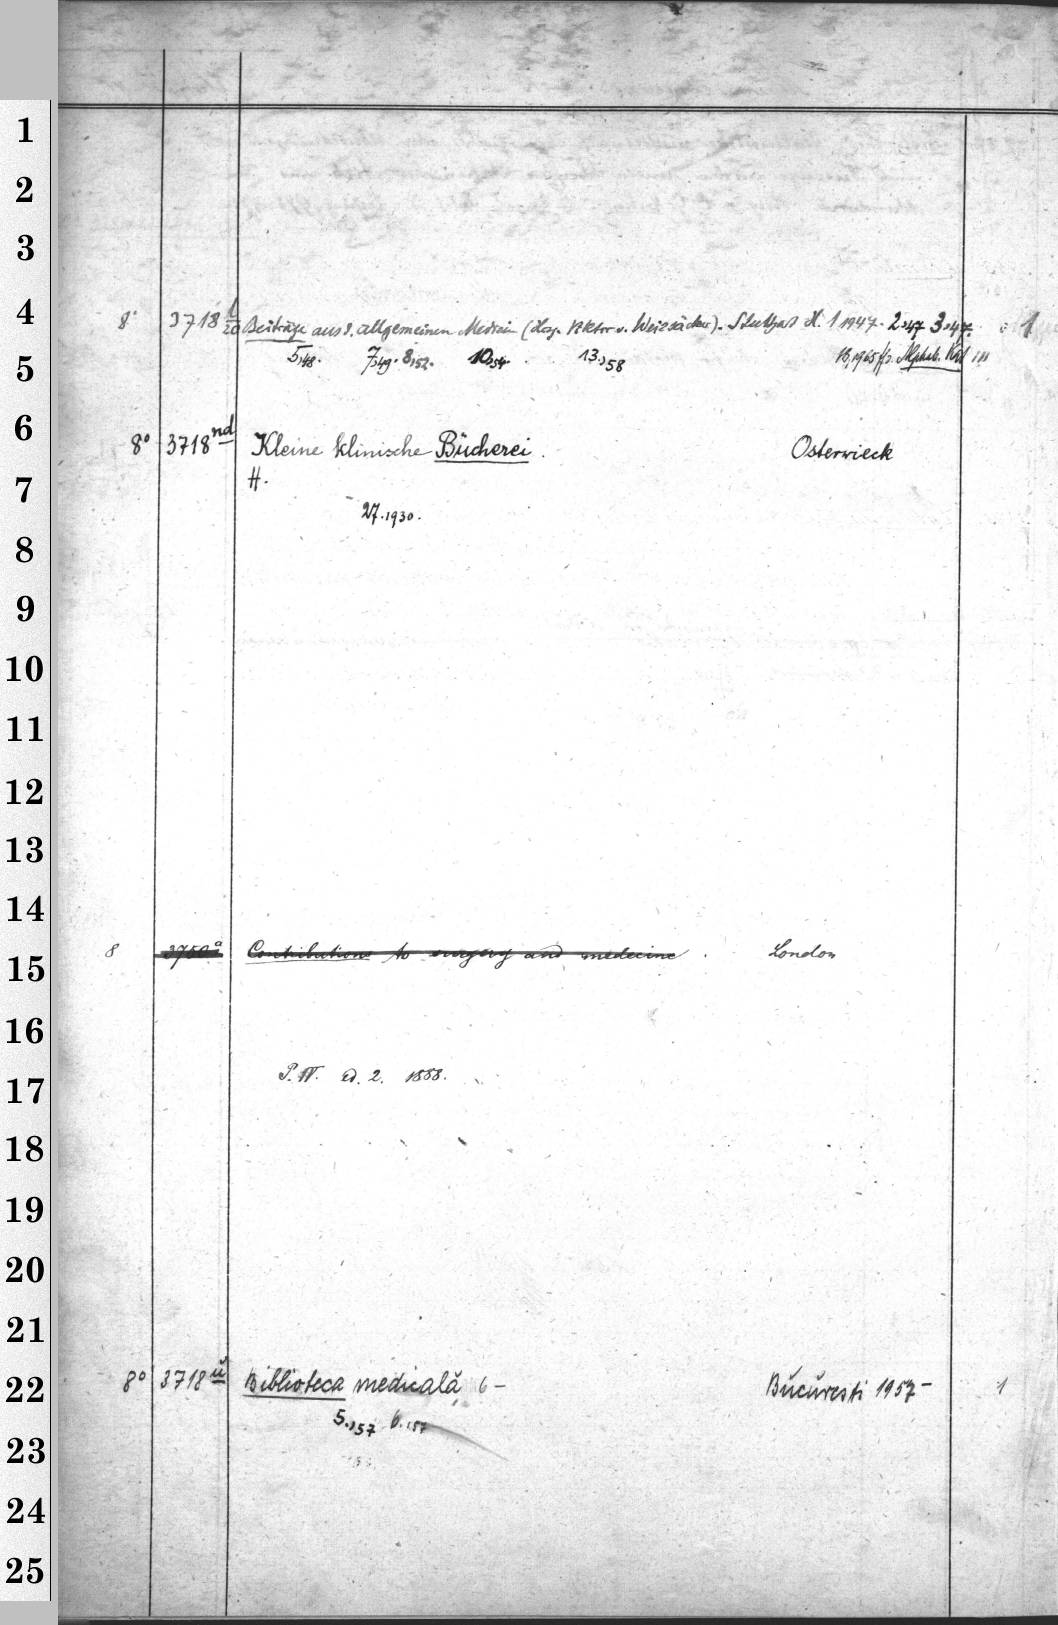 1
2
3
4
8° 3718 l/20 Beiträge aus d. allgemeinen Medizin (Hrsg. Viktor v. Weizsäcker). Stuttgart H. 1 1947. 2.,47 3.,47. 1
5
5.,48. 7,49. 8,52. 10,54. 13.,58 18,1965 Alphab. Kat
6
8° 3718 nd Kleine klinische Bücherei. Osterwieck
7
H.
8
27.1930.
9
10
11
12
13
14
15
8 3750 a Contributions to surgery and medecine. London
16
17
P. IV. Ed. 2. 1888.
18
19
20
21
22
8° 3718 ü Biblioteca medicală 6 – Bŭcŭresti 1957 – 1
23
5.,57 6.,57
24
25